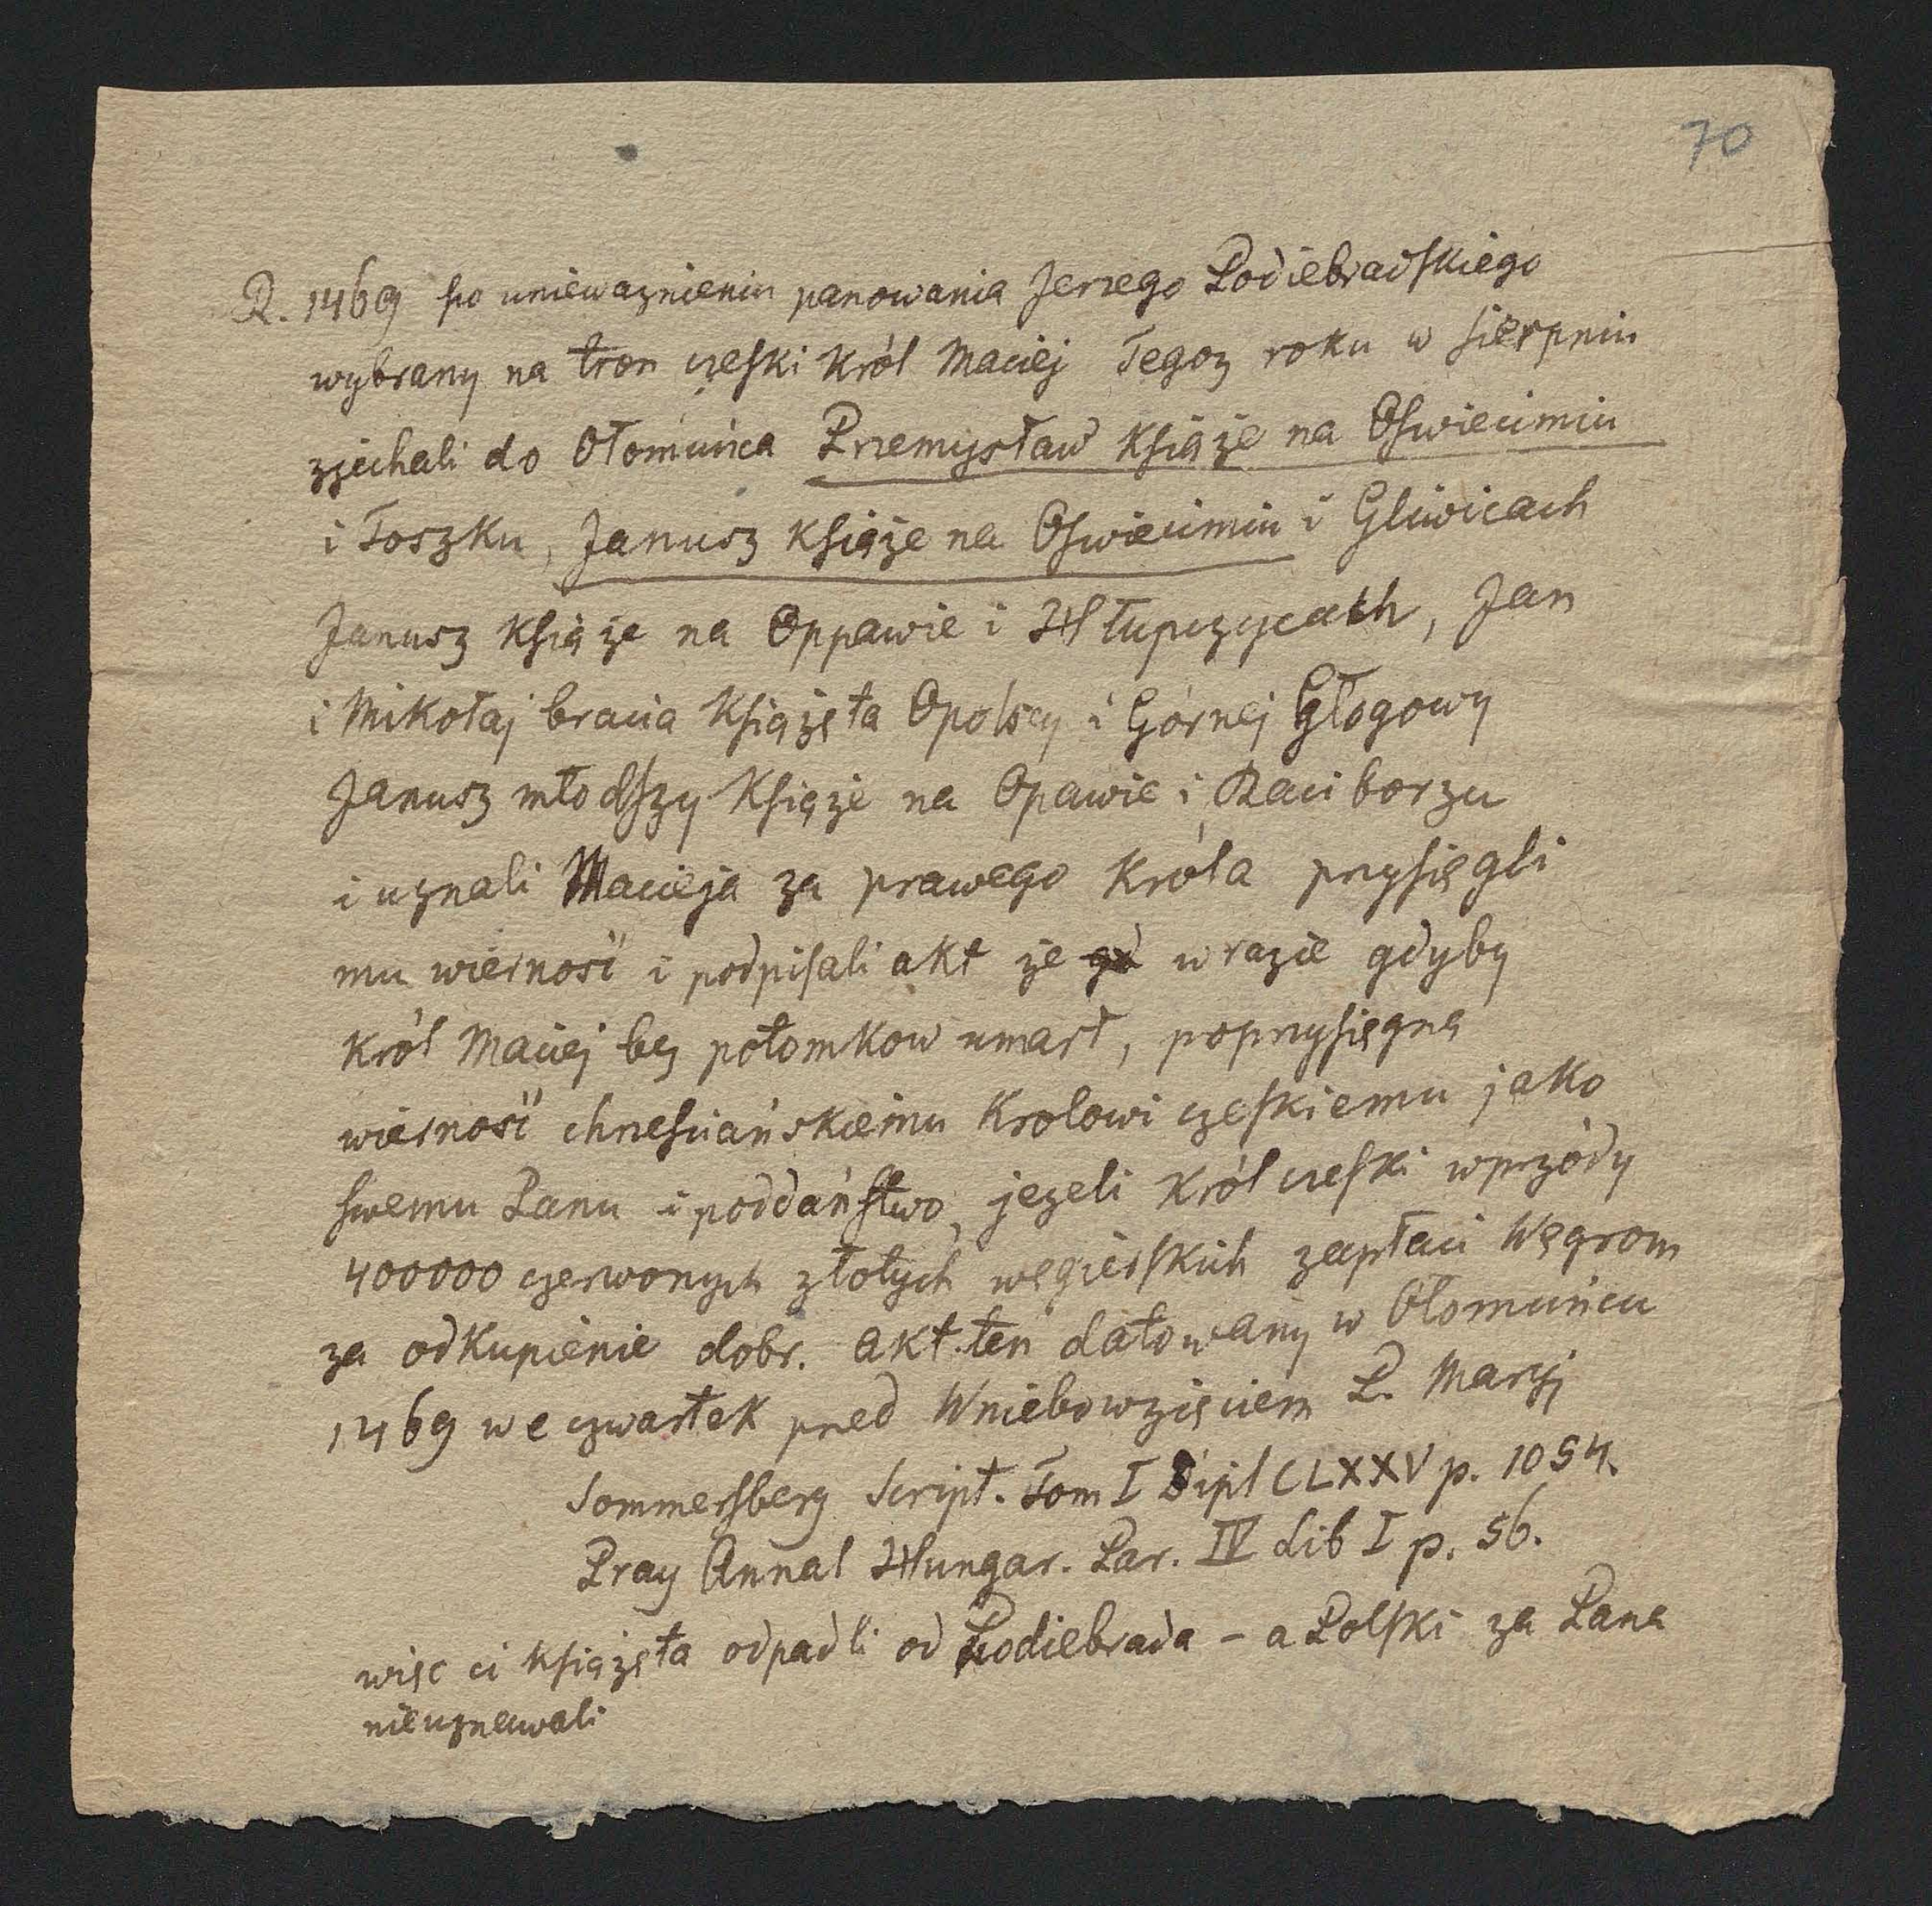 70
R. 1469 po uniewaznieniu panowania Jerzego Podiebradskiego
wybrany na tron czeski Król Maciej Tegoz roku w sierpniu
zjechali do Ołomuńca Przemysław Książe na Oswiecimiu
i Toszku, Janusz książe na Oswiecimiu i Gliwicach
Janusz Książe na Oppawie i Hłupczycach, Jan
i Mikołaj bracia Książęta Opolscy i Górnej Głogowy
Janusz młodszy Książe na Opawie i Raciborzu
i uznali Macieja za prawego Króla przysięgli
mu wierność i podpisali akt ze gd w razie gdyby
Król Maciej bez potomkow umarł, poprzysięgną
wierność chrześciańskiemu Krolowi czeskiemu jako
swemu Panu i poddaństwo, jezeli Król czeski wprzódy
400000 czerwonych złotych węgierskich zapłaci Węgrom
za odkupienie dobr. Akt ten datowany w Ołomuńcu
1469 we czwartek przed Wniebowzięciem P. Maryj
Sommersberg Script. Tom I Dipl CLXXV p. 1054.
Pray Annal Hungar. Par. IV Lib I p. 56.
więc ci książęta odpadli od Podiebrada - a Polski za Pana
nieuznawali